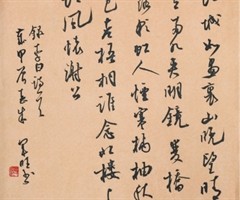 江城如畫裏山晚望晴
空兩水夾明鏡雙橋
落彩虹人煙寒橘柚秋
色老梧桐誰念北樓上
臨風懷謝公
錄李白詩
甲辰